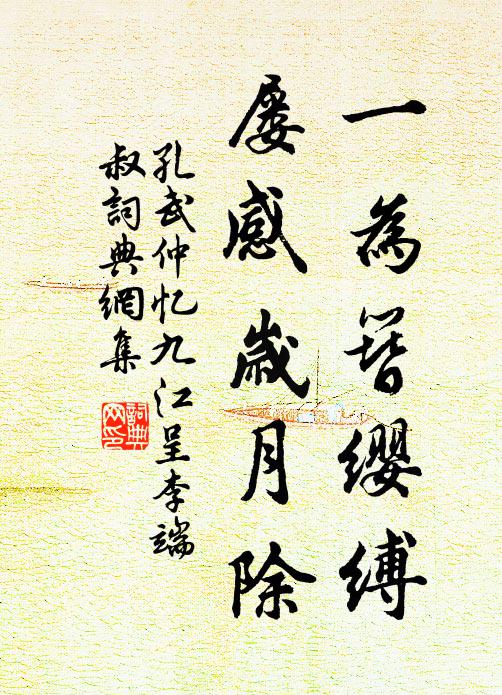 一為簪纓縛
屡感歲月除
孔武仲忆九江呈李端
叔詞典網集
詞典
网印